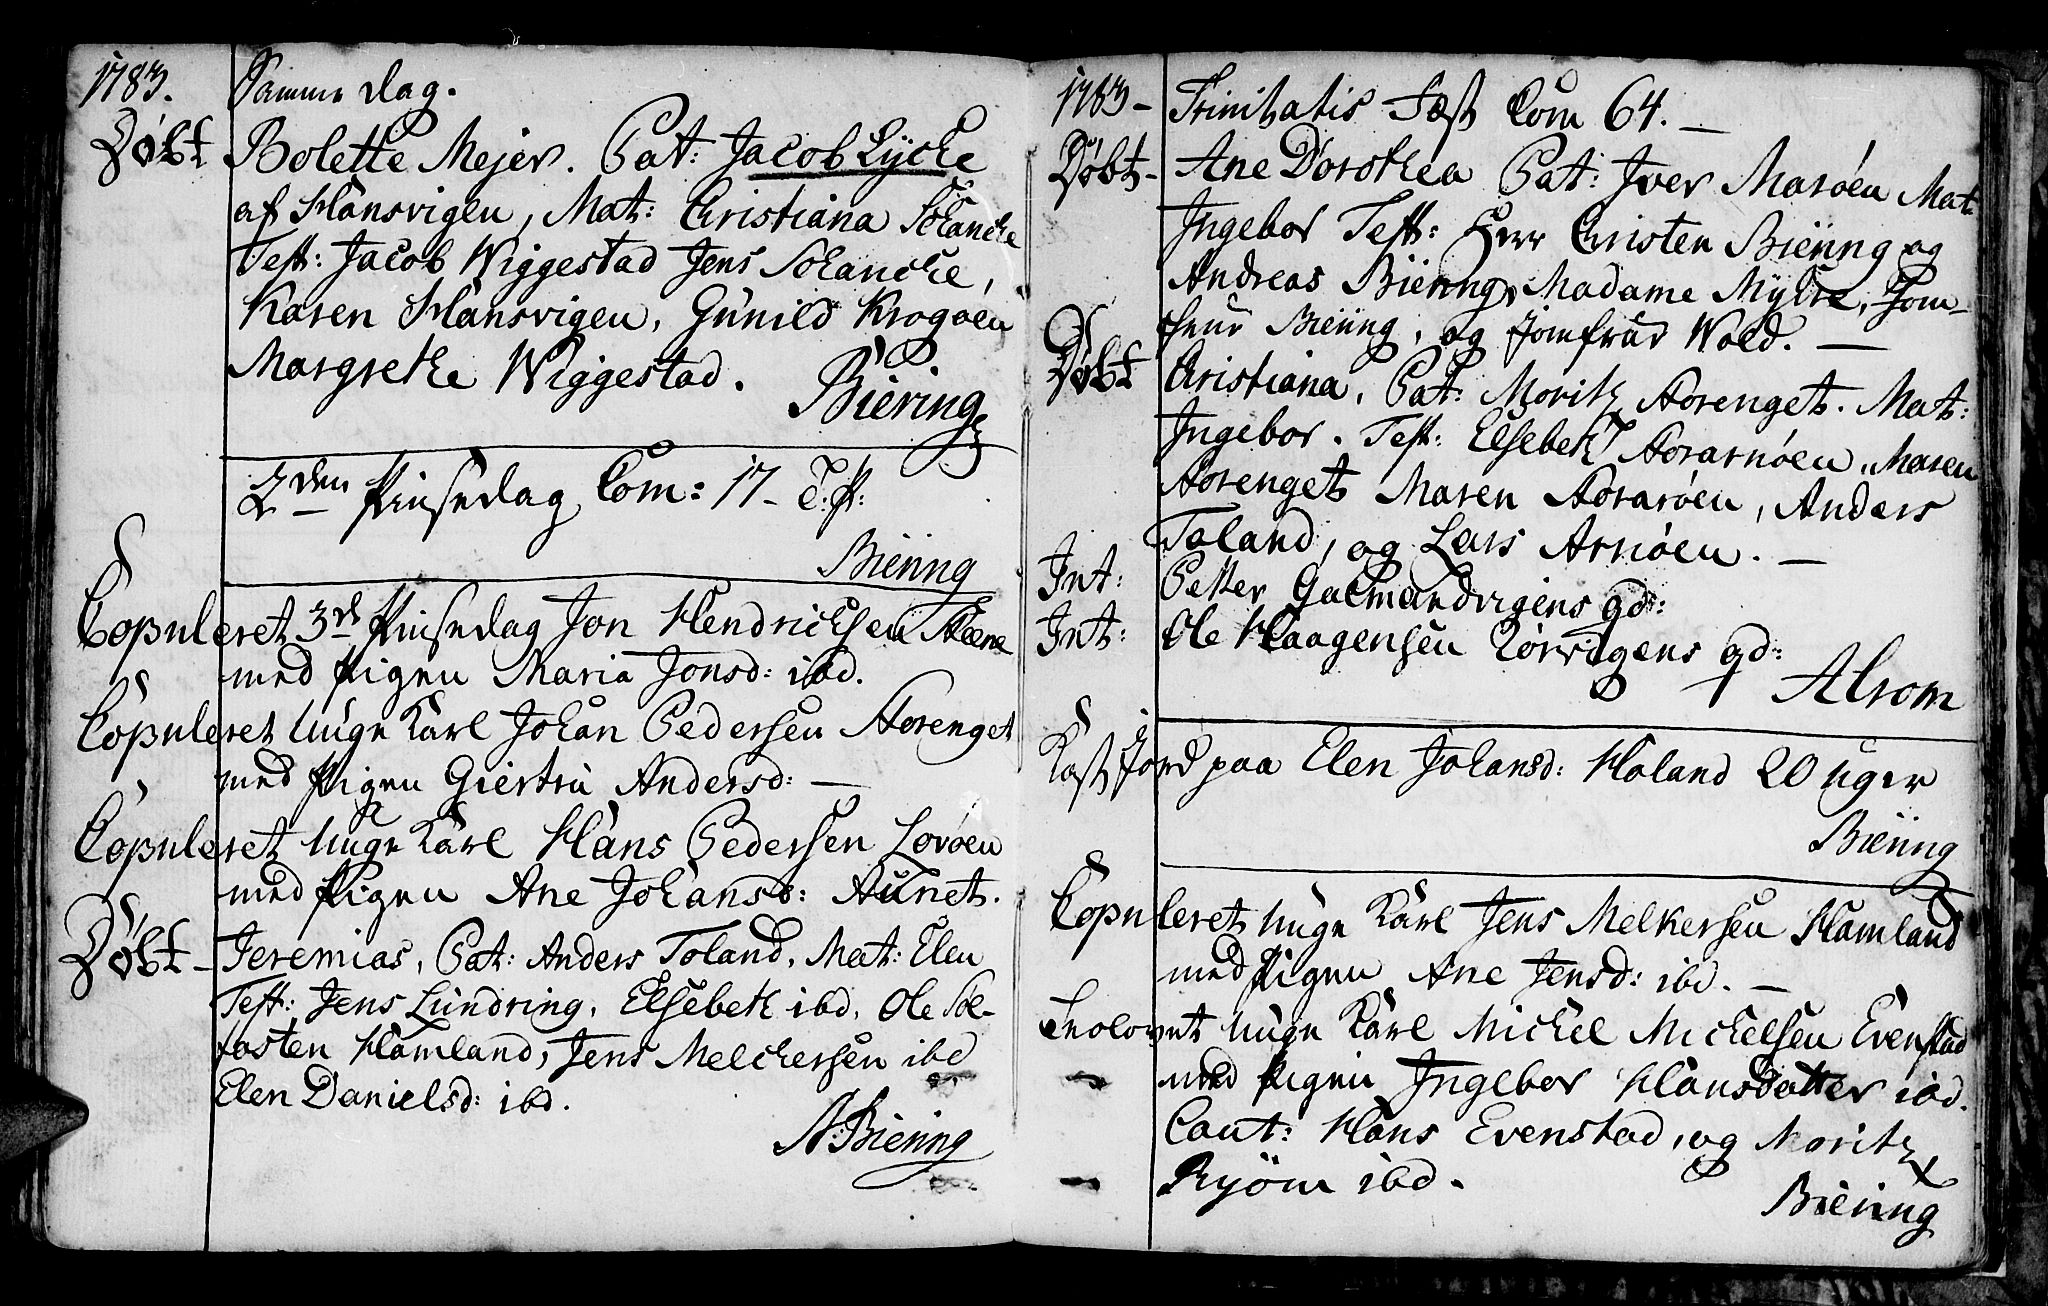 1783. Samme dag.
Døbt Bolette Mejer. Pat: Jacob Lycke
af Hansvigen, Mat: Christiana Schancke
Test: Jacob Wiggestad Jens Schancke,
Karen Hansvigen, Gunild Krogøen
Margrethe Wiggestad.
Biering
2den Pinsedag Com: 17
Biering
Copuleret 3de Pinsedag Jon Hendrichsen
med Pigen Maria Jonsd: ibd.
Copuleret unge Karl Johan Pedersen Aarenget
med Pigen Giertru Andersd: —
Copuleret unge Karl Hans Pedersen Lovøen
med Pigen Ane Johansd: Aunet.
Døbt – Jeremias, Pat: Anders Toland, Mat: Elen
Test: Jens Lundring, Elsebeth ibd, Ole Sol-
fosten Hamland, Jens Melchersen ibd
Elen Danielsd: ibd.
A: Biering
1783 – Trinitatis Fæst Com 64. —
Døbt – Ane Dorothea Pat: Iver Marøen Mat
Ingebor Test: Herr Christen Biering og
Andreas Biering, Madame Mylre, Jom-
frue Biering, og Jomfrue Wold. —
Døbt Christiana, Pat: Moritz Aarenget. Mat:
Ingebor. Test: Elsebeth Maren
Aarenget Maren Anders
Toland, og Lars Arnøen. —
Int: Petter Galmandvigens gd:
Int: Ole Haagensen Rørvigens gd:
Alrom
Kast Jord paa Elen Johansd: Haland 20 uger
Biering
Copuleret unge Karl Jens Melkersen Hamland
med Pigen Ane Jensd: ibd. —
Trolovet unge Karl Michel Michelsen Evenstad
med Pigen Ingebor Hansdatter ibd.
Caut: Hans Evenstad, og Moritz
Ryöm ibd.
Biering